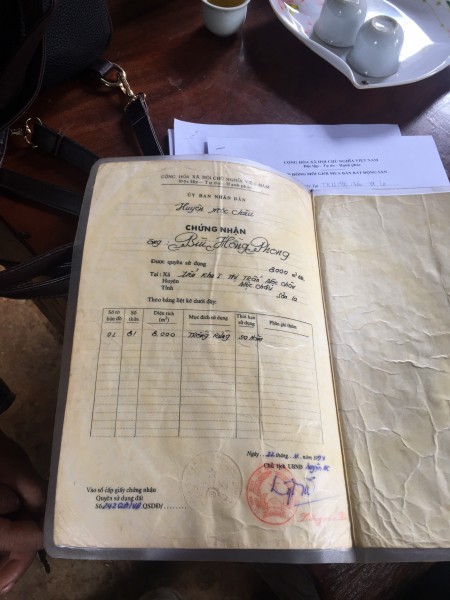 CỘNG HÒA XÃ HỘI CHỦ NGHĨA VIỆT NAM
Độc lập - Tự do - Hạnh phúc
CỘNG HÒA XÃ HỘI CHỦ NGHĨA VIỆT NAM
Độc lập - Tự do - Hạnh phúc
ỦY BAN NHÂN DÂN
Huyện Mộc Châu
CHỨNG NHẬN
Ông : Bùi Hồng Phong
Được quyền sử dụng 8000 m2
Tại : Xã Tiểu Khu I Thị Trấn Mộc Châu
Huyện Mộc Châu
Tỉnh Sơn La
Theo bảng liệt kê dưới đây:
Số tờ bản đồ Số thửa Diện tích (m²) Mục đích sử dụng Thời hạn sử dụng Phần ghi thêm
02 81 8.000 Trồng Rừng 50 năm
Ngày 22 tháng năm
Chủ tịch UBND huyện MC
Vào sổ cấp giấy chứng nhận
Quyền sử dụng đất
Số QSDĐ/